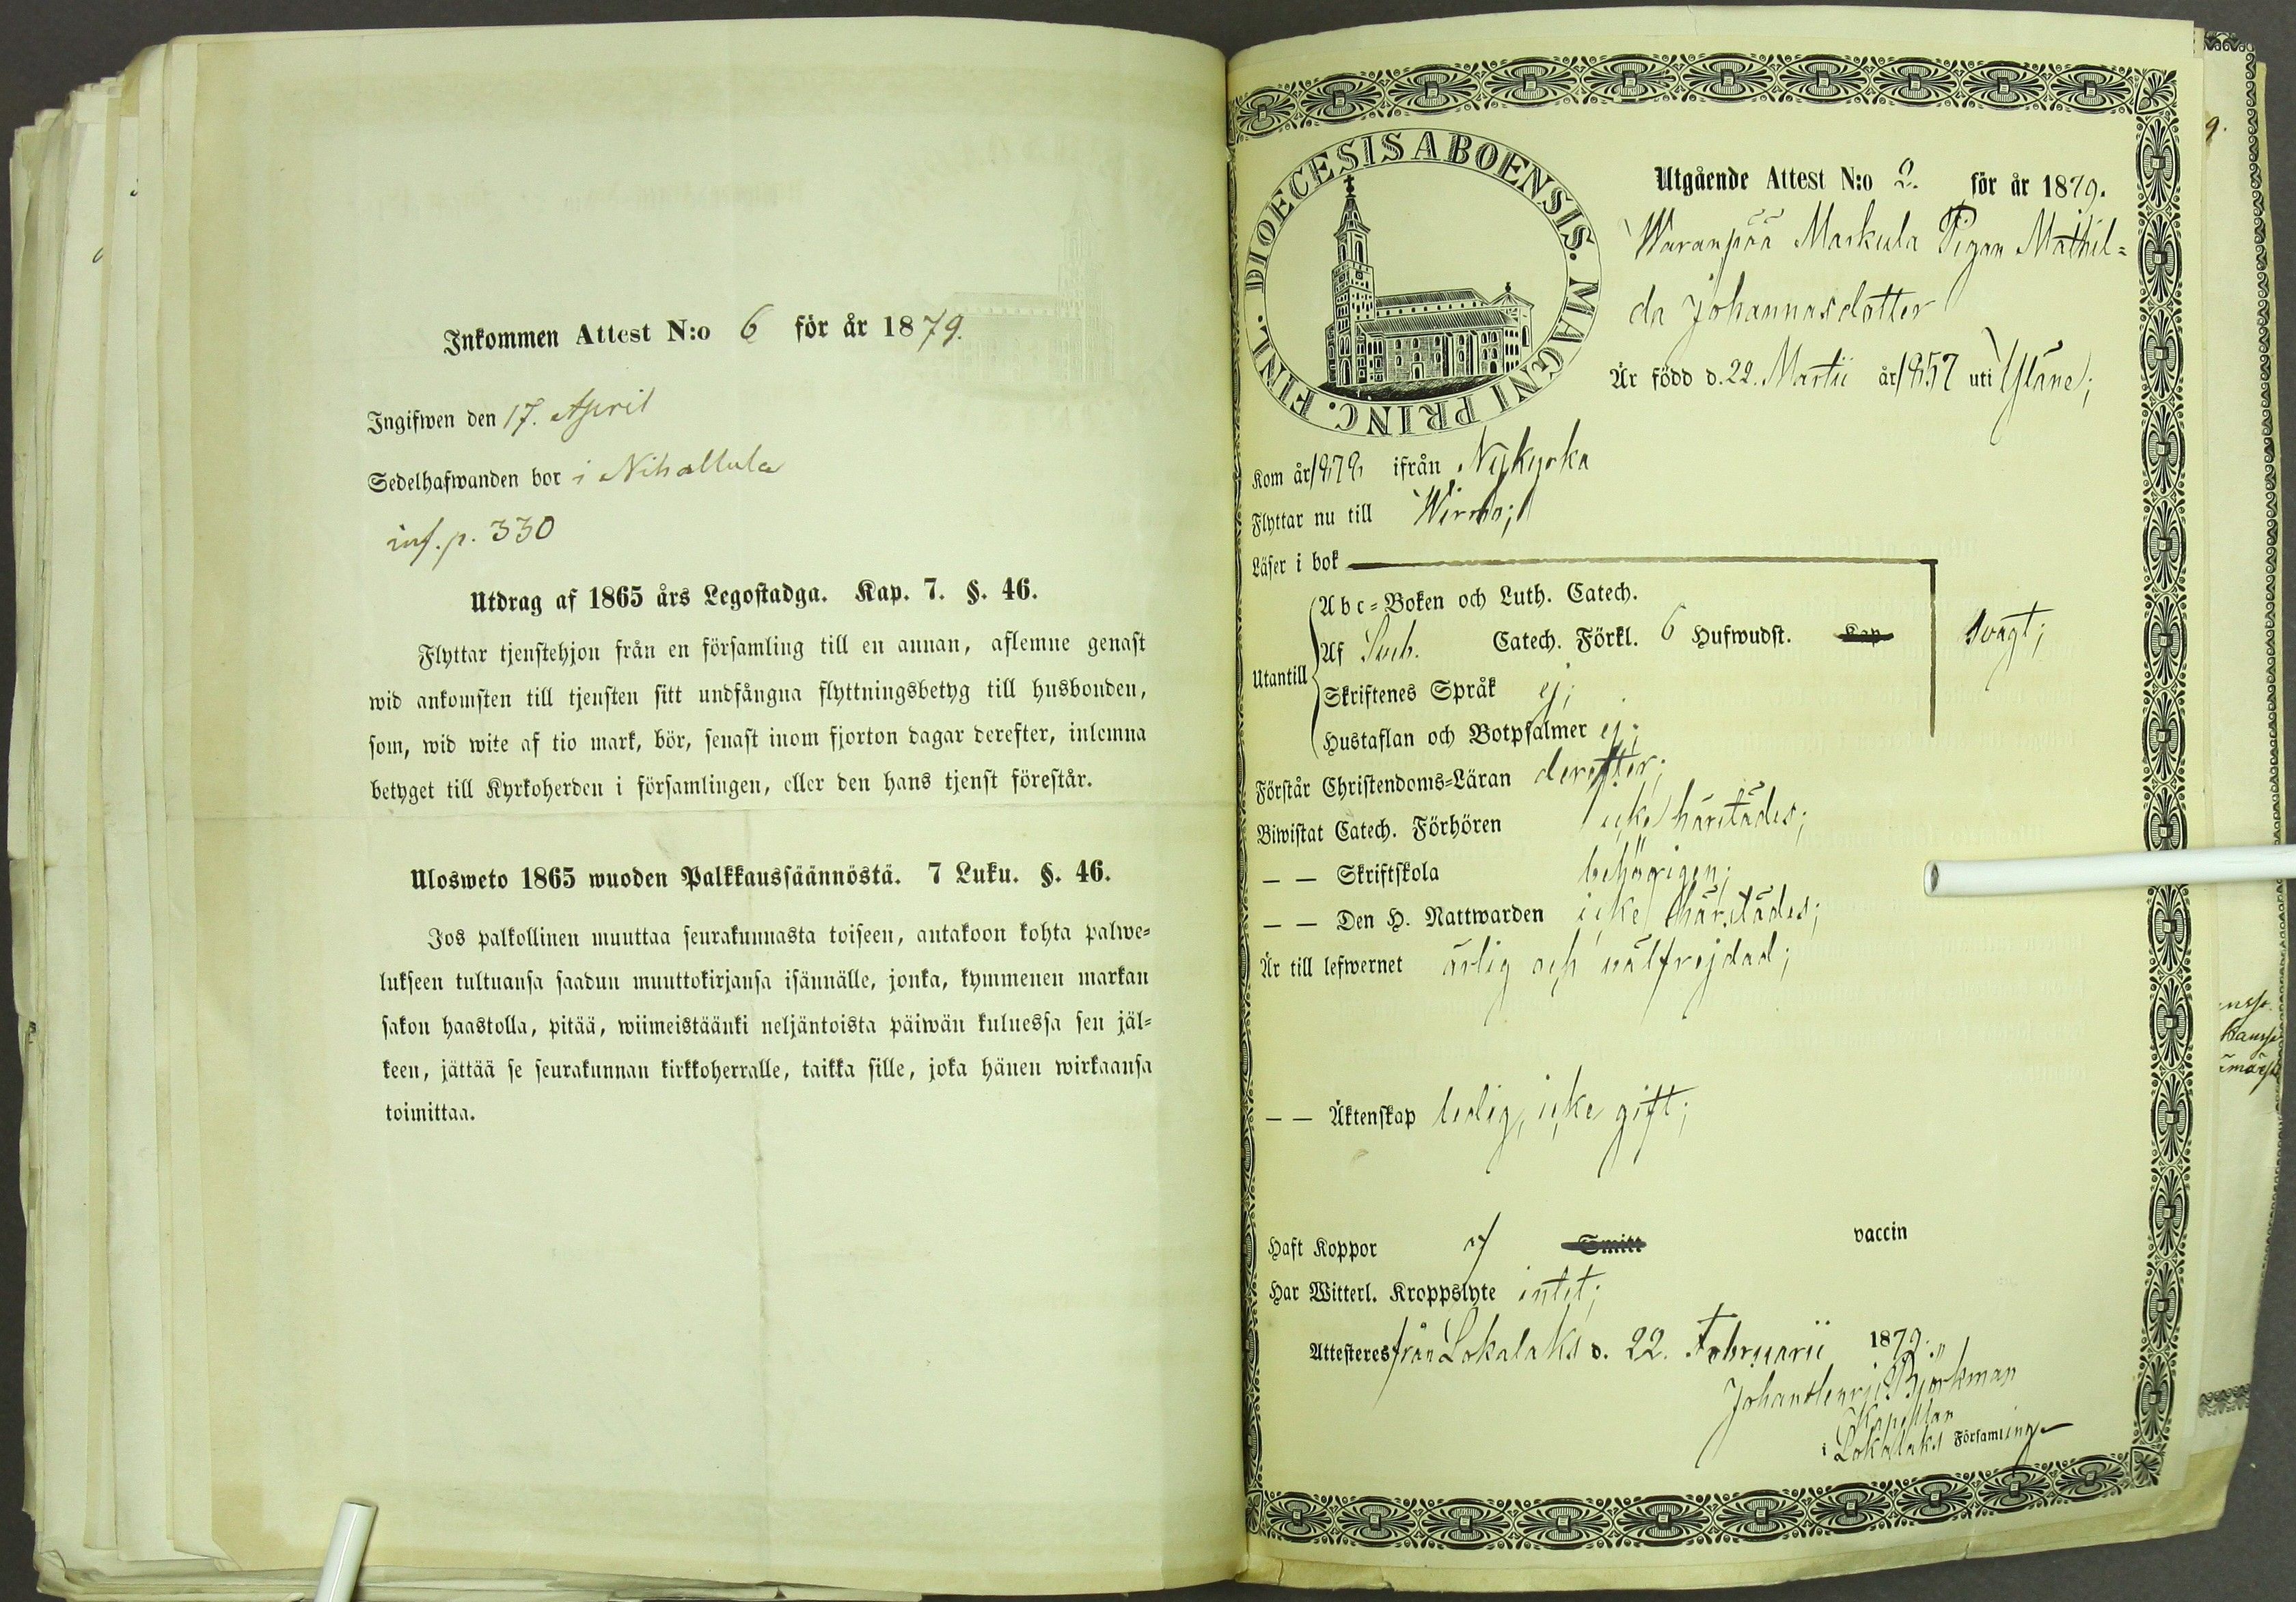 Inkommen Attest N:o 6 för år 1879.
Ingifwen den 17. April
Sedelhafwanden bor i Nihattula
inf. p. 330
Utdrag af 1865 års Legostadga. Kap. 7. §. 46.
Flyttar tjenstehjon från en församling till en annan, aflemne genast
wid ankomsten till tjensten sitt undfångna flyttningsbetyg till husbonden,
som, wid wite af tio mark, bör, senast inom fjorton dagar derefter, inlemna
betyget till Kyrkoherden i församlingen, eller den hans tjenst förestår.
Ulosweto 1865 wuoden Palkkaussäännöstä. 7 Luku. §. 46.
Jos palkollinen muuttaa seurakunnasta toiseen, antakoon kohta palwe=
lukseen tultuansa saadun muuttokirjansa isännälle, jonka, kymmenen markan
sakon haastolla, pitää, wiimeistäänki neljäntoista päiwän kuluessa sen jäl=
keen, jättää se seurakunnan kirkkoherralle, taikka sille, joka hänen wirkaansa
toimittaa.
DIOECESIS ABOENSIS. MAGNI PRINC. FINL.
Utgående Attest N:o 2. för år 1879.
Waranpää Markula Pigan Mathil=
da Johannasdotter
Är född d. 22. Martii år 1857 uti Yläne;
Kom år 1878 ifrån Nykyrka
Flyttar nu till Wirmo;
Läser i bok
Utantill
Abc=Boken och Luth. Catech.
Af Sveb. Catech. Förkl. 6 Hufwudst. Kap svagt;
Skriftenes Språk ej;
Hustaflan och Botpsalmer ej;
Förstår Christendoms=Läran derefter;
Biwistat Catech. Förhören icke härstädes;
— — Skriftskola behörigen;
— — Den H. Nattwarden icke härstädes;
Är till lefwernet ärlig och välfrejdad;
— — Äktenskap ledig, icke gift;
Haft Koppor Smitt vaccin
Har Witterl. Kroppslyte intet;
Attesteres från Lokalaks d. 22. Februarii 1879.
Johan Henric Björkman
Kapellan
i Lokalaks Församling